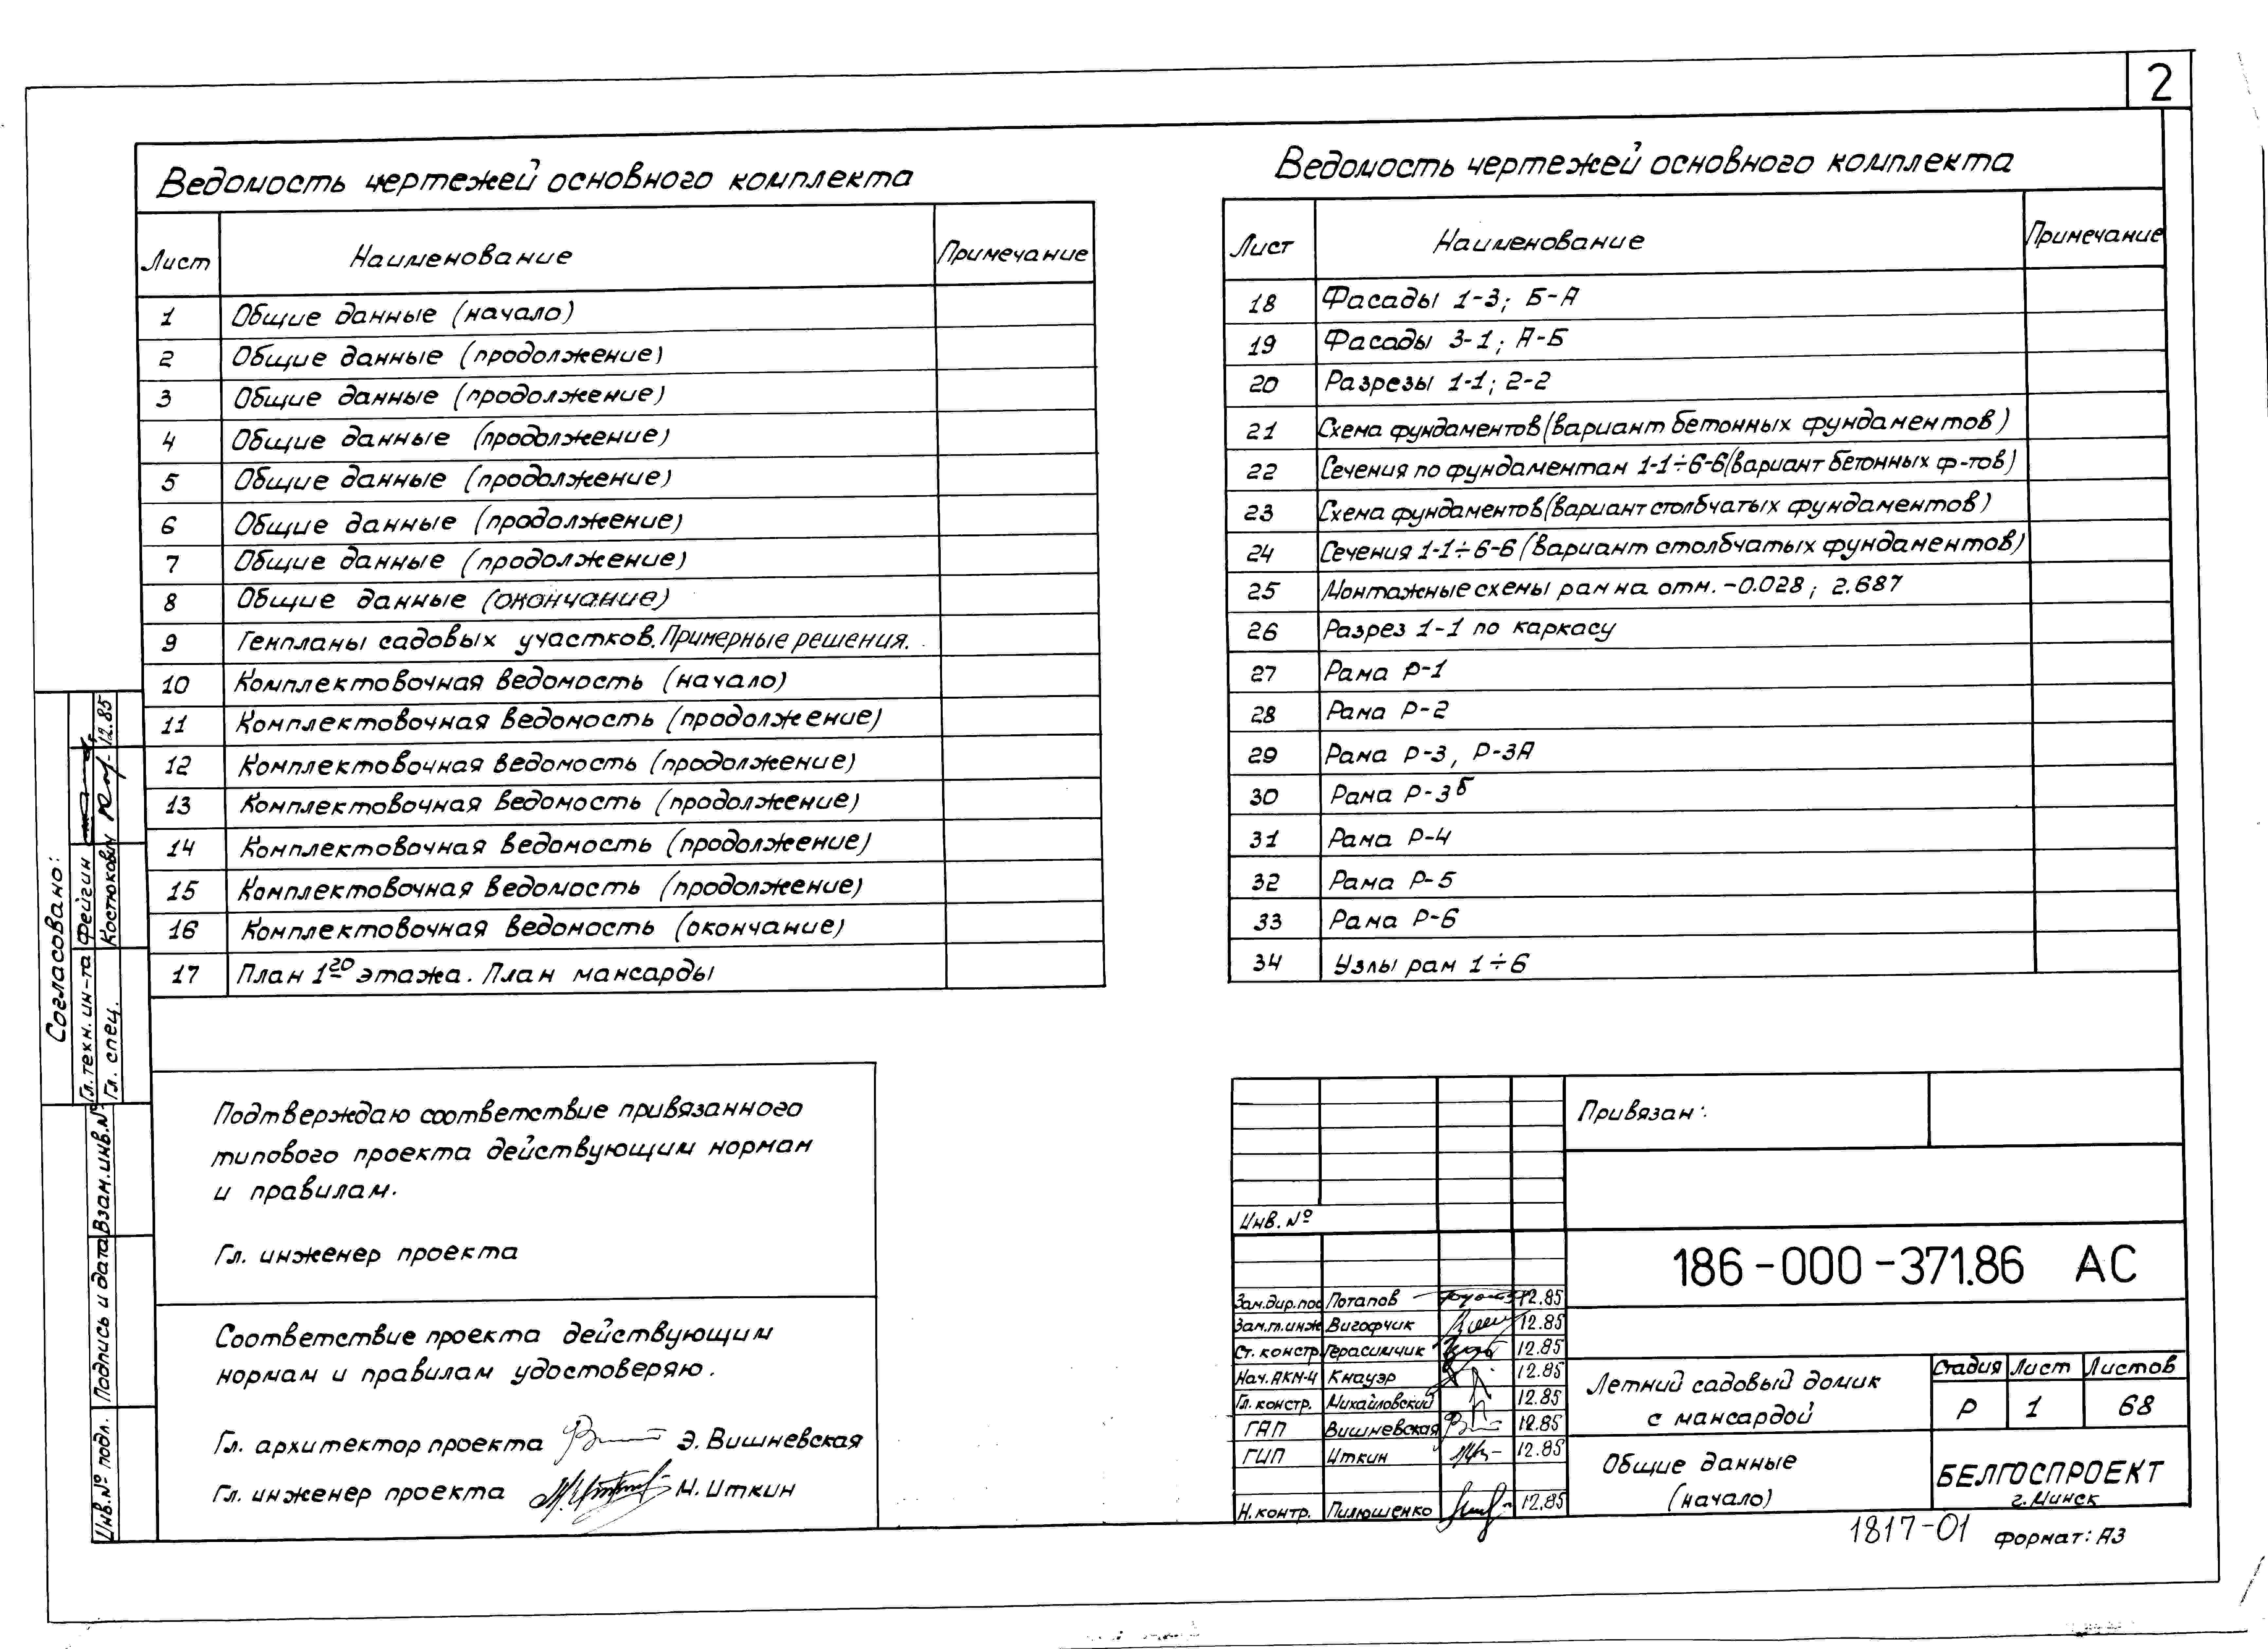 2
Ведомость чертежей основного комплекта
Лист Наименование Примечание
1 Общие данные (начало)
2 Общие данные (продолжение)
3 Общие данные (продолжение)
4 Общие данные (продолжение)
5 Общие данные (продолжение)
6 Общие данные (продолжение)
7 Общие данные (продолжение)
8 Общие данные (окончание)
9 Генпланы садовых участков. Примерные решения.
10 Комплектовочная ведомость (начало)
11 Комплектовочная ведомость (продолжение)
12 Комплектовочная ведомость (продолжение)
13 Комплектовочная ведомость (продолжение)
14 Комплектовочная ведомость (продолжение)
15 Комплектовочная ведомость (продолжение)
16 Комплектовочная ведомость (окончание)
17 План 1го этажа. План мансарды
Ведомость чертежей основного комплекта
Лист Наименование Примечание
18 Фасады 1-3; Б-А
19 Фасады 3-1; А-Б
20 Разрезы 1-1; 2-2
21 Схема фундаментов (вариант бетонных фундаментов)
22 Сечения по фундаментам 1-1÷6-6 (вариант бетонных ф-тов)
23 Схема фундаментов (вариант столбчатых фундаментов)
24 Сечения 1-1÷6-6 (вариант столбчатых фундаментов)
25 Монтажные схемы рам на отм. -0.028; 2.687
26 Разрез 1-1 по каркасу
27 Рама Р-1
28 Рама Р-2
29 Рама Р-3, Р-3А
30 Рама Р-3б
31 Рама Р-4
32 Рама Р-5
33 Рама Р-6
34 Узлы рам 1÷6
Согласовано:
Гл. техн. ин-та Фейгин
Гл. спец. Костюкович 12.85
Взам. инв. №
Подпись и дата
Инв. № подл.
Подтверждаю соответствие привязанного
типового проекта действующим нормам
и правилам.
Гл. инженер проекта
Соответствие проекта действующим
нормам и правилам удостоверяю.
Гл. архитектор проекта Э. Вишневская
Гл. инженер проекта М. Иткин
Привязан:
Инв. №
186-000-371.86 АС
Зам.дир.по Потапов 12.85
Зам.гл.инж Вигофчик 12.85
Ст. констр. Герасимчик 12.85
Нач.АКМ-4 Кнауэр 12.85
Гл. констр. Михайловский 12.85
ГАП Вишневская 12.85
ГИП Иткин 12.85
Н.контр. Пилюшенко 12.85
Летний садовый домик
с мансардой
Стадия Лист Листов
Р 1 68
Общие данные
(начало)
БЕЛГОСПРОЕКТ
г. Минск
1817-01 Формат: А3